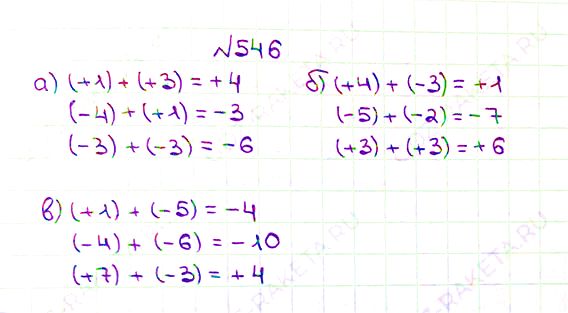 №546
а) (+1) + (+3) = +4
(-4) + (+1) = -3
(-3) + (-3) = -6
б) (+4) + (-3) = +1
(-5) + (-2) = -7
(+3) + (+3) = +6
в) (+1) + (-5) = -4
(-4) + (-6) = -10
(+7) + (-3) = +4